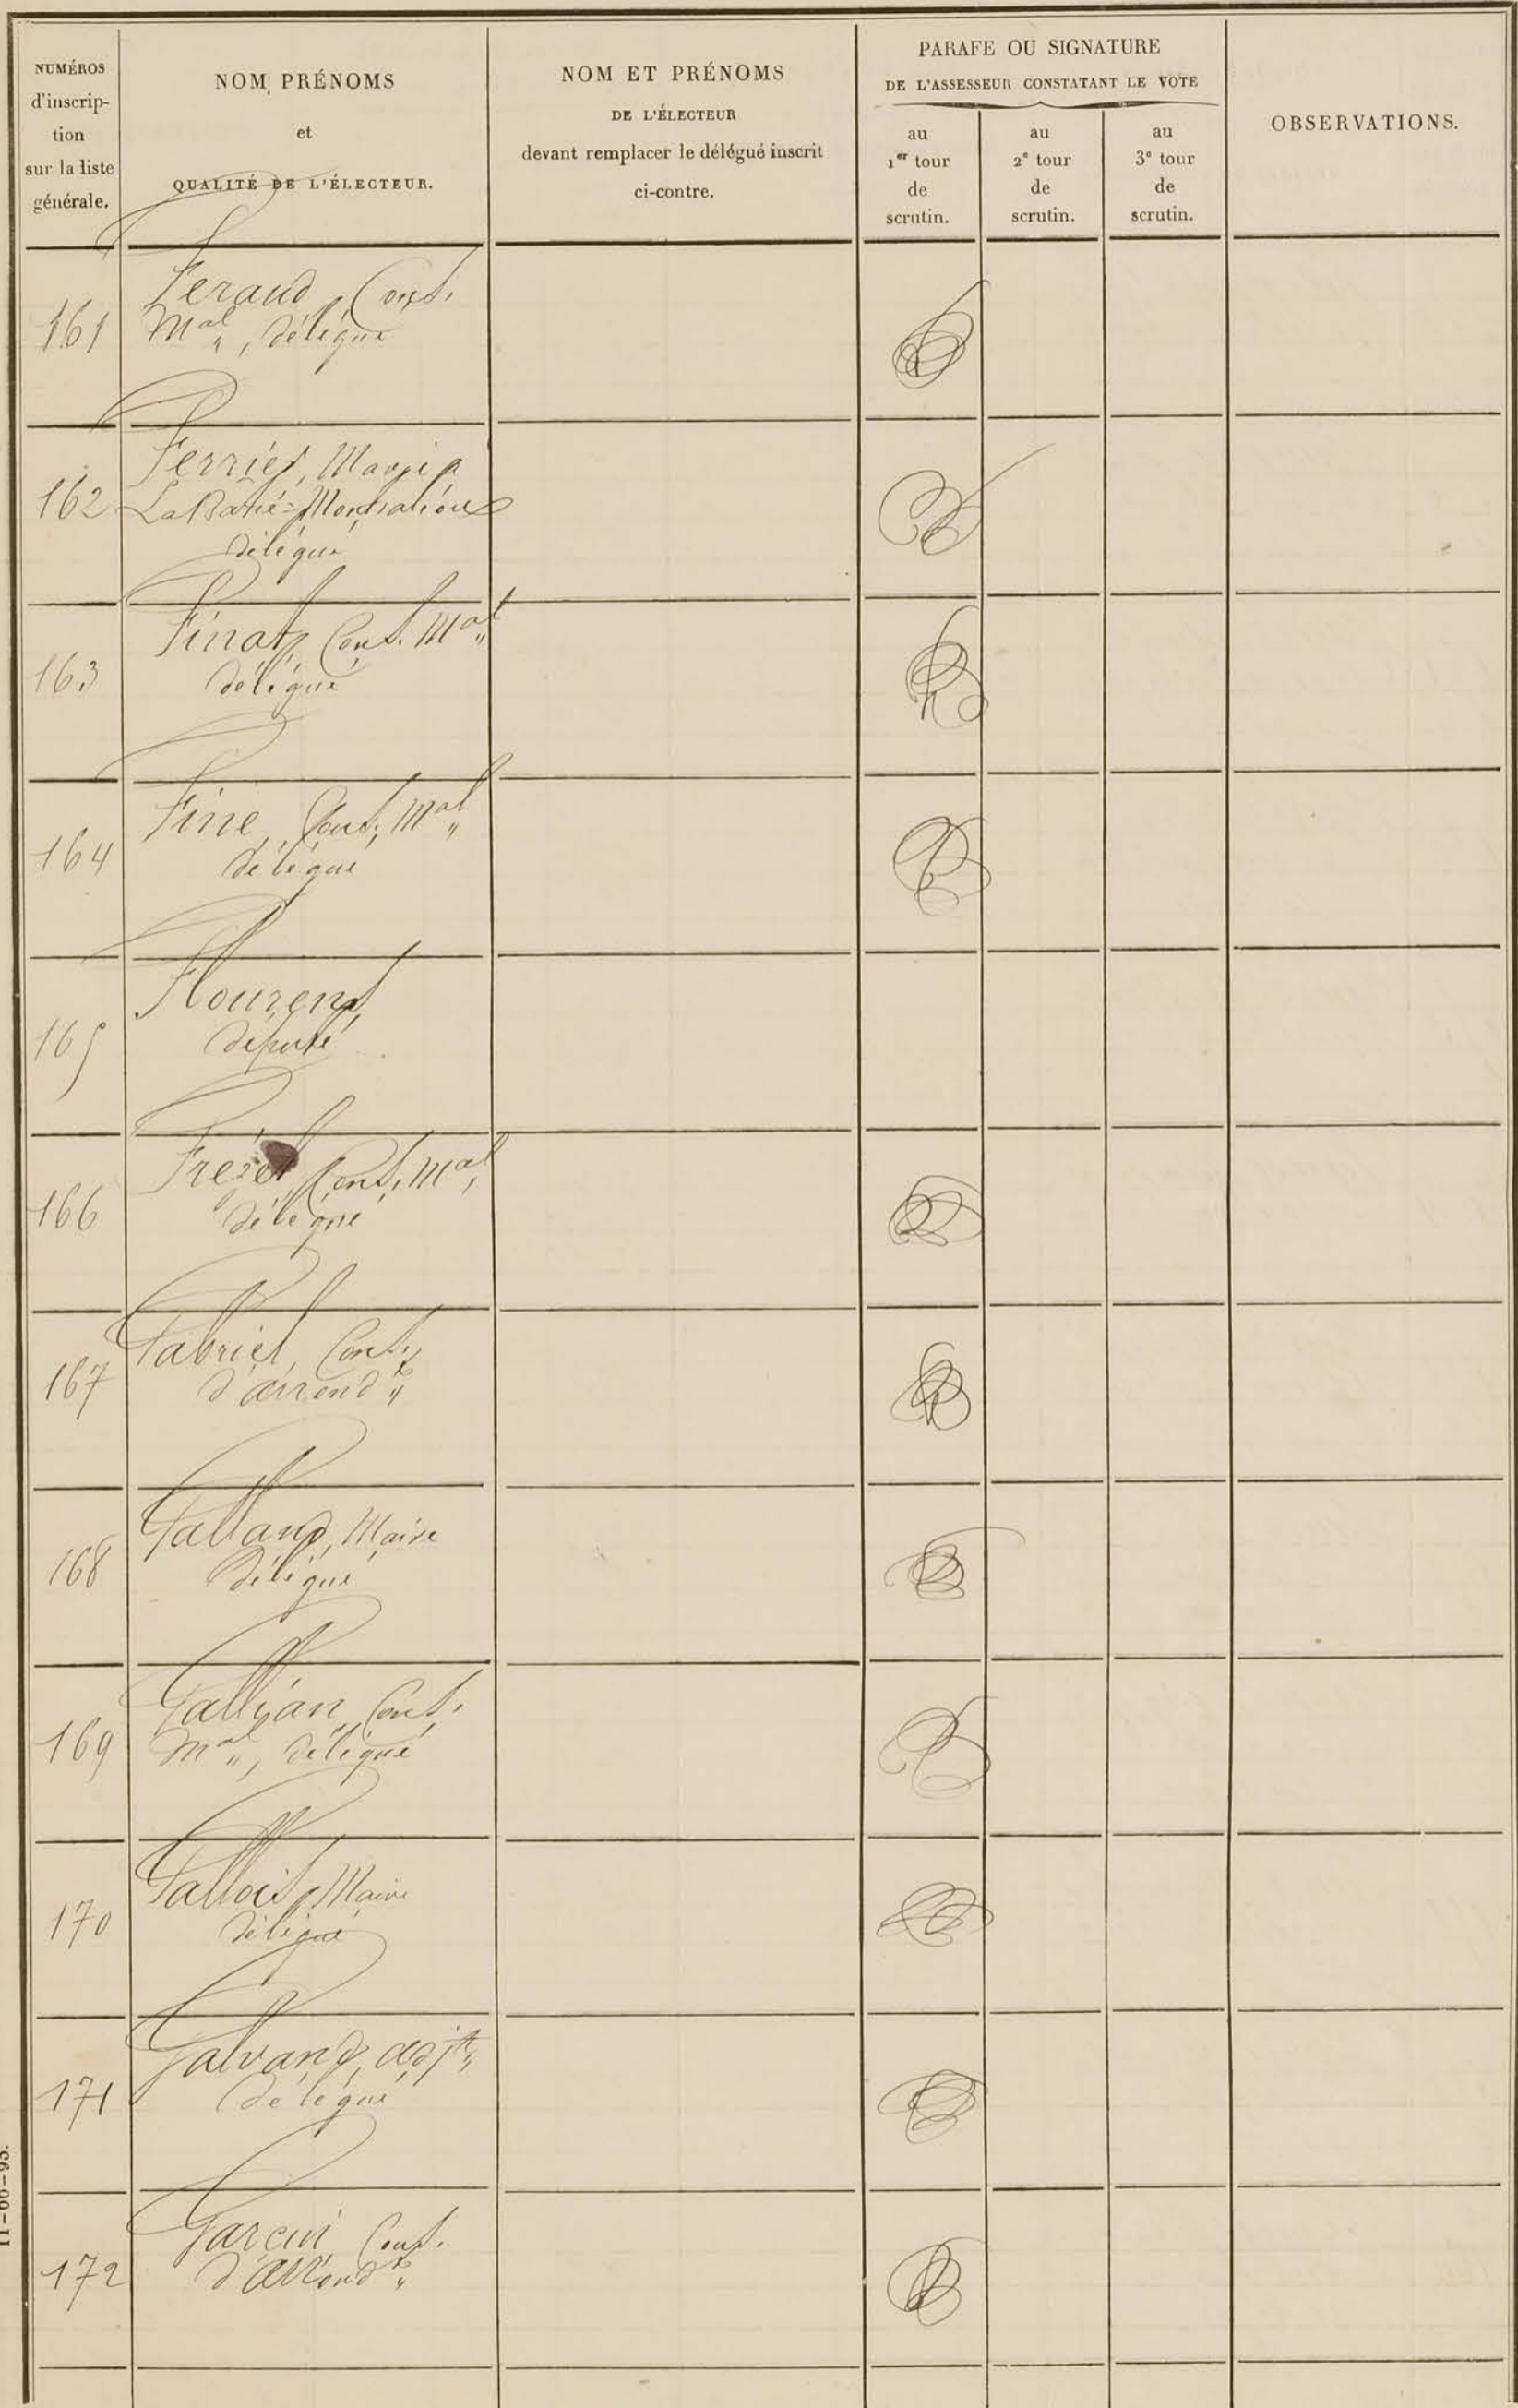 NUMÉROS
d'inscrip-
tion
sur la liste
générale.
NOM, PRÉNOMS
et
QUALITÉ DE L'ÉLECTEUR.
NOM ET PRÉNOMS
DE L'ÉLECTEUR
devant remplacer le délégué inscrit
ci-contre.
PARAFE OU SIGNATURE
DE L'ASSESSEUR CONSTATANT LE VOTE
au
1er tour
de
scrutin.
au
2e tour
de
scrutin.
au
3e tour
de
scrutin.
OBSERVATIONS.
161
Feraud, Cons.
Mal, délégué
162
Ferrier,
La Batie-
délégué
163
Finat, Cons. Mal
délégué
164
Fine, Cons. Mal
délégué
165
Flourens,
député
166
Cons. Mal,
délégué
167
Gabriel, Cons.
d'arrondt
168
Galland, Maire
délégué
169
Gallian, Cons.
Mal, délégué
170
Gallois, Maire
délégué
171
Galvand, adjt,
délégué
172
Garcin, Cons.
d'arrondt
11-66-93.